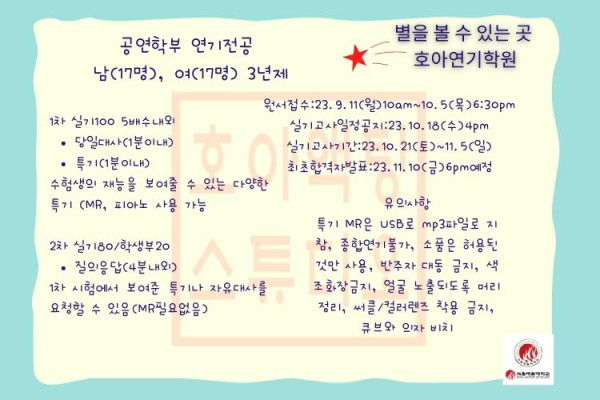 공연학부 연기전공
남(17명), 여(17명) 3년제
별을 볼 수 있는 곳
호아연기학원
1차 실기100 5배수내외
• 당일대사(1분이내)
• 특기(1분이내)
수험생의 재능을 보여줄 수 있는 다양한
특기 (MR, 피아노 사용 가능
2차 실기80/학생부20
• 질의응답(4분내외)
1차 시험에서 보여준 특기나 자유대사를
요청할 수 있음(MR필요없음)
원서접수:23.9.11(월)10am~10.5(목)6:30pm
실기고사일정공지:23.10.18(수)4pm
실기고사기간:23.10.21(토)~11.5(일)
최초합격자발표:23.11.10(금)6pm예정
유의사항
특기 MR은 USB로 mp3파일로 지
참, 종합연기불가, 소품은 허용된
것만 사용, 반주자 대동 금지, 색
조화장금지, 얼굴 노출되도록 머리
정리, 써클/컬러렌즈 착용 금지,
큐브와 의자 비치
호아액팅
스튜디오
서울예술대학교